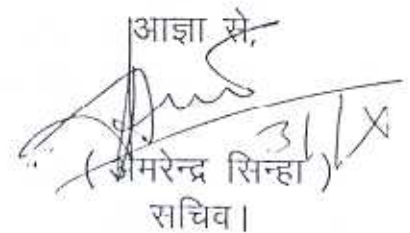 आज्ञा से,
31/X
( अमरेन्द्र सिन्हा )
सचिव।